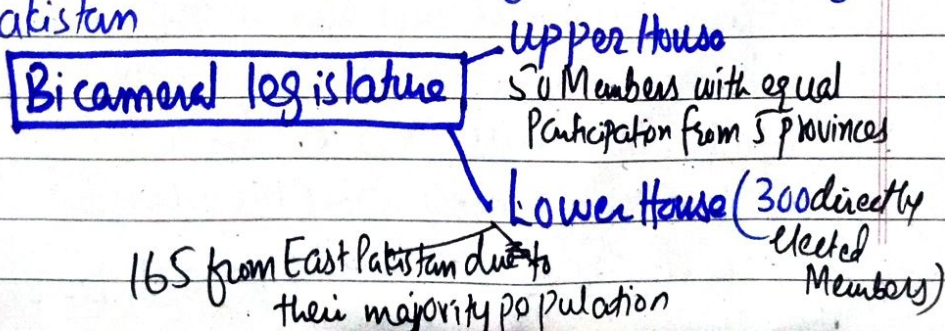 akistan
Bicameral legislature
Upper House
50 Members with equal
Participation from 5 provinces
Lower House (300 directly
elected
Members)
165 from East Pakistan due to
their majority population